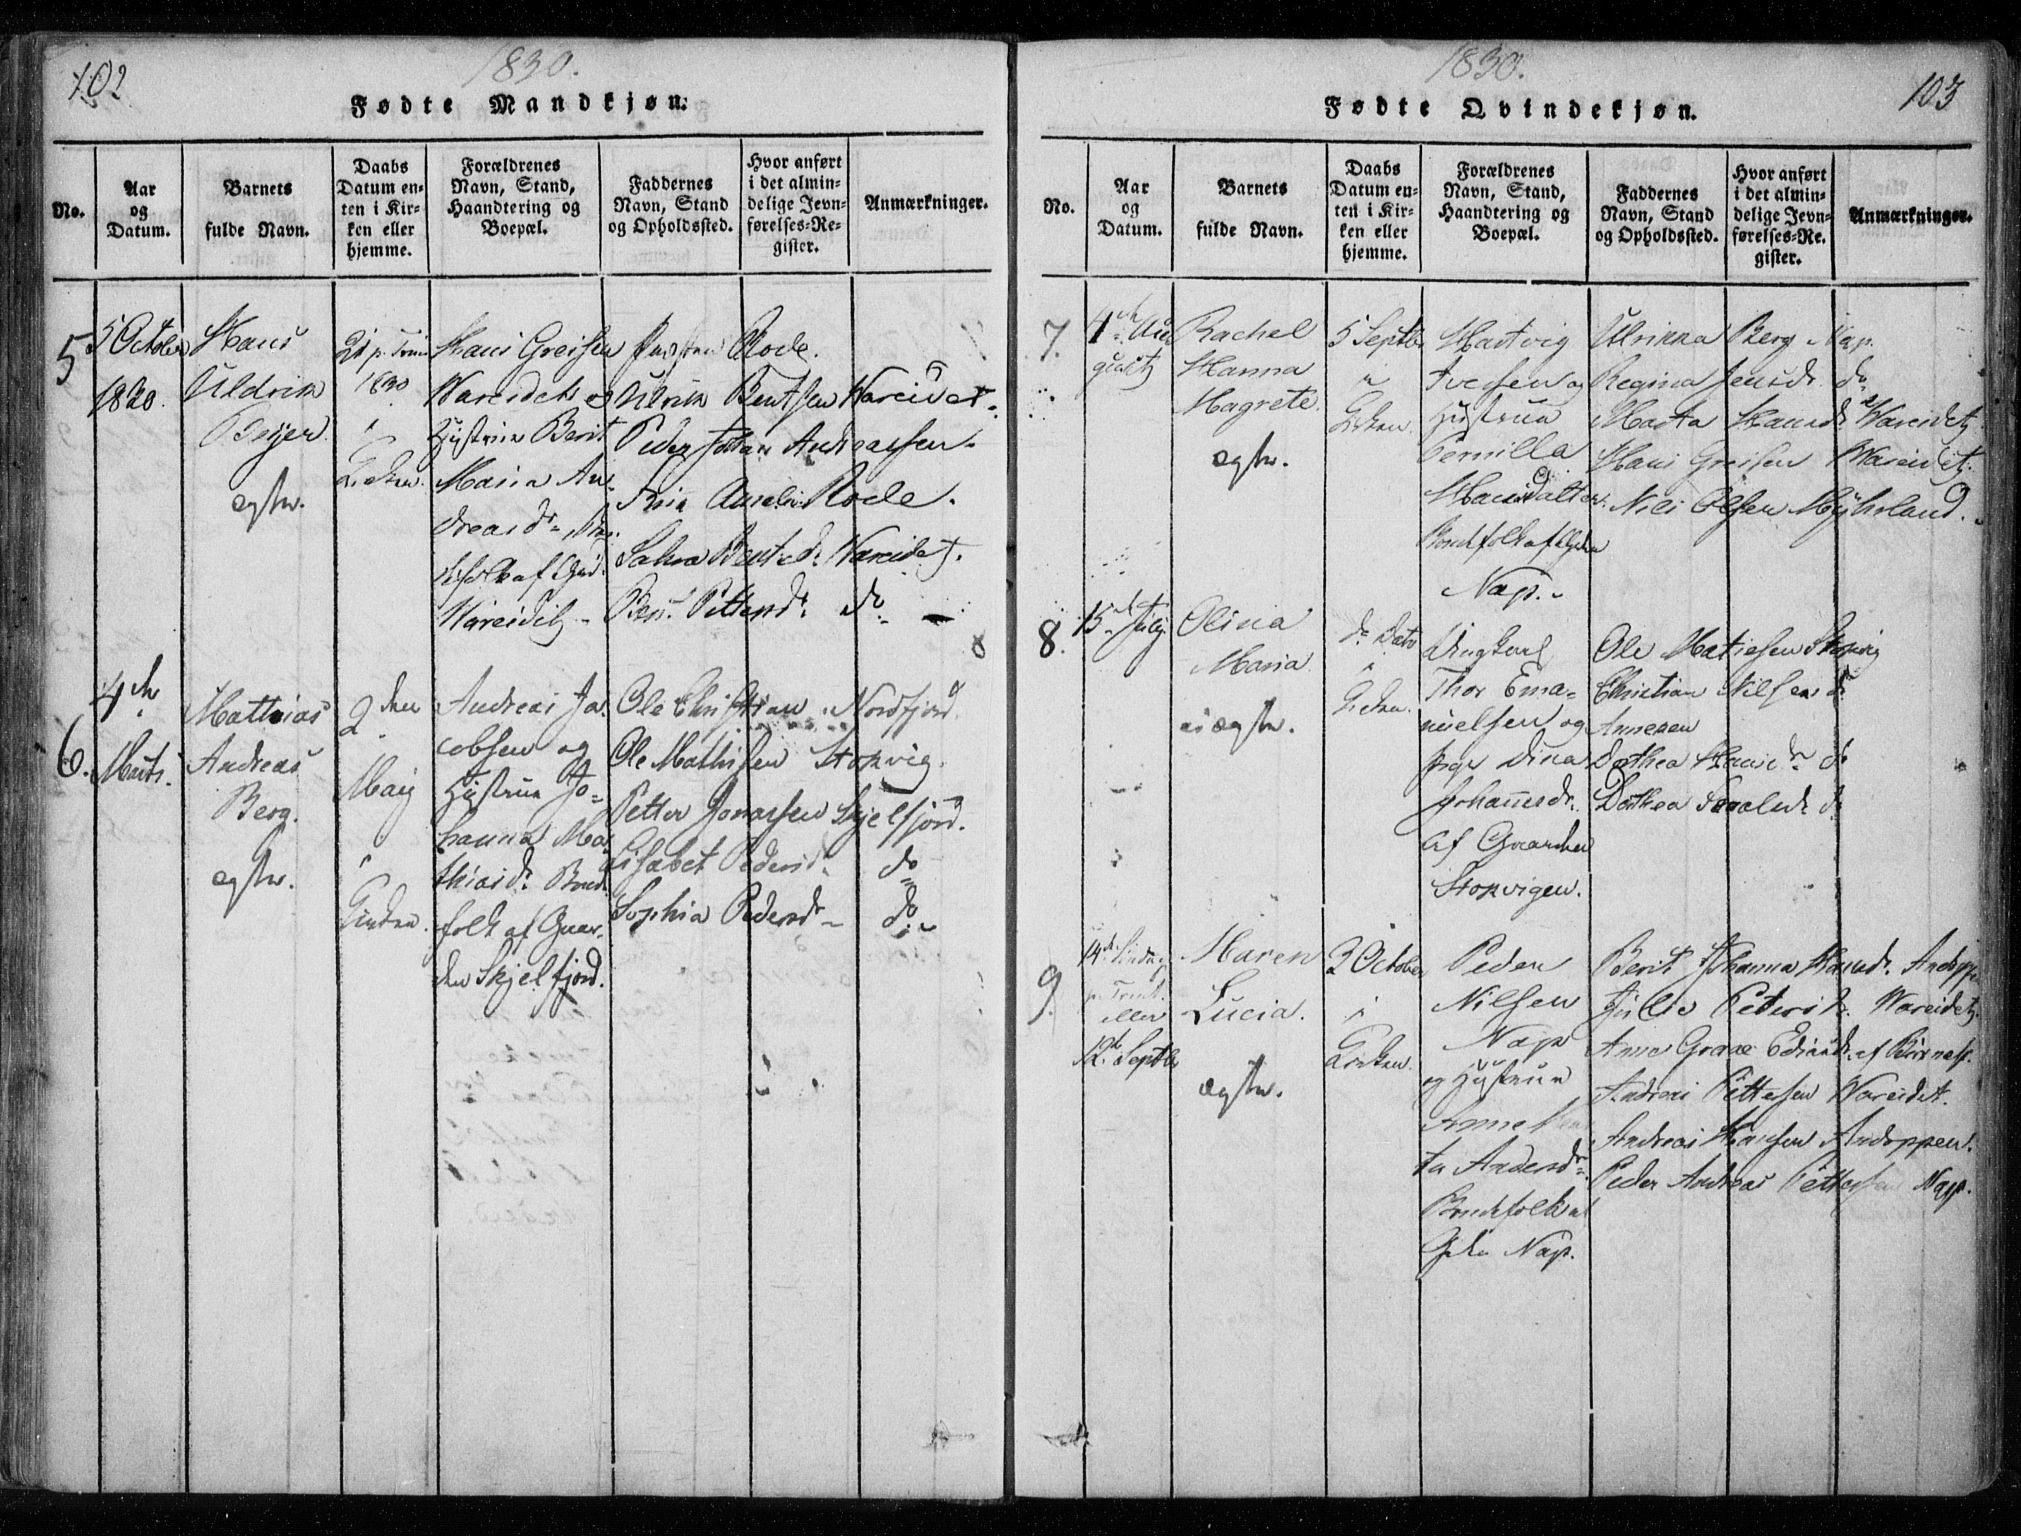 102
1830.
Fødte Mandkjøn.
No.
Aar
og
Datum.
Barnets
fulde Navn.
Daabs
Datum en-
ten i Kir-
ken eller
hjemme.
Forældrenes
Navn, Stand,
Haandtering og
Boepæl.
Faddernes
Navn, Stand
og Opholdssted.
Hvor anført
i det almin-
delige Jevn-
førelses-Re-
gister.
Anmærkninger.
5
5 October
1830.
Hans
Uldrik
Beyer
ægte.
21 p. Trin
1830
i
Kirken.
Hans Greisen
Wareidet og
Hystrue Berit
Maria An-
dreasdr
af
Wareidet
Rode.
Ulrik Bentsen Wareidet
Peder Johan Andreassen
Amalia Rode.
Bentsdr. Wareidet.
Pettersdr. do
6.
4de
Marts.
Mathias
Andreas
Berg.
ægte.
2den
May
i
Kirken.
Andreas Ja-
cobsen og
Hystrue Jo-
hanna Ma-
thiasdr. Bonde
folk af Gaar-
den Skjelfjord.
Ole Christian Nordfjord
Ole Mathisen Stokvig
Petter Jonassen Skjelfjord.
Lisabet Pedersdr. do
Sophia Pedersdr do
103
1830.
Fødte Qvindekjøn.
No.
Aar
og
Datum.
Barnets
fulde Navn.
Daabs
Datum en-
ten i Kir-
ken eller
hjemme.
Forældrenes
Navn, Stand,
Haandtering og
Boepæl.
Faddernes
Navn, Stand
og Opholdssted.
Hvor anført
i det almin-
delige Jevn-
førelses-Re-
gister.
Anmærkninger.
7.
4de Au-
gust
Rachel
Hanna
Magrete.
ægte.
5 Septbr
i
Kirken.
Hartvig
Iversen og
Hystrue
Pernilla
Hansdatter.
Bondefolk af
Nap.
Ulrikka Berg Nap.
Regina Jensdr. do
Marta Hansdr Wareidet
Hans Greisen Wareidet.
Nils Olsen Myhrland.
8.
15de July
Olina
Maria
uægte.
do Dato
i
Kirken.
Ungkarl
Thor Ema-
nuelsen og
Pige Dina
Johannesdr.
af Gaarden
Stokvigen.
Ole Matiesen Stokvig
Christian Nilsen do
Annexen
Dorthea Hansdr do
Dorthea do
9.
14de Søndag
p. Trinit.
eller
12te Septbr
Maren
Lucia.
ægte.
3 October
i
Kirken.
Peder
Nilsen
Nap
og Hystrue
Anne
ta Andersdr
Bondefolk af
Nap.
Berit Johanna Hansdr. Andoppen
Julie Petersdr. Wareidet.
Anne af
Andreas Pettersen Wareidet.
Andreas Hansen Andoppen.
Peder Andreas Pettersen Nap.